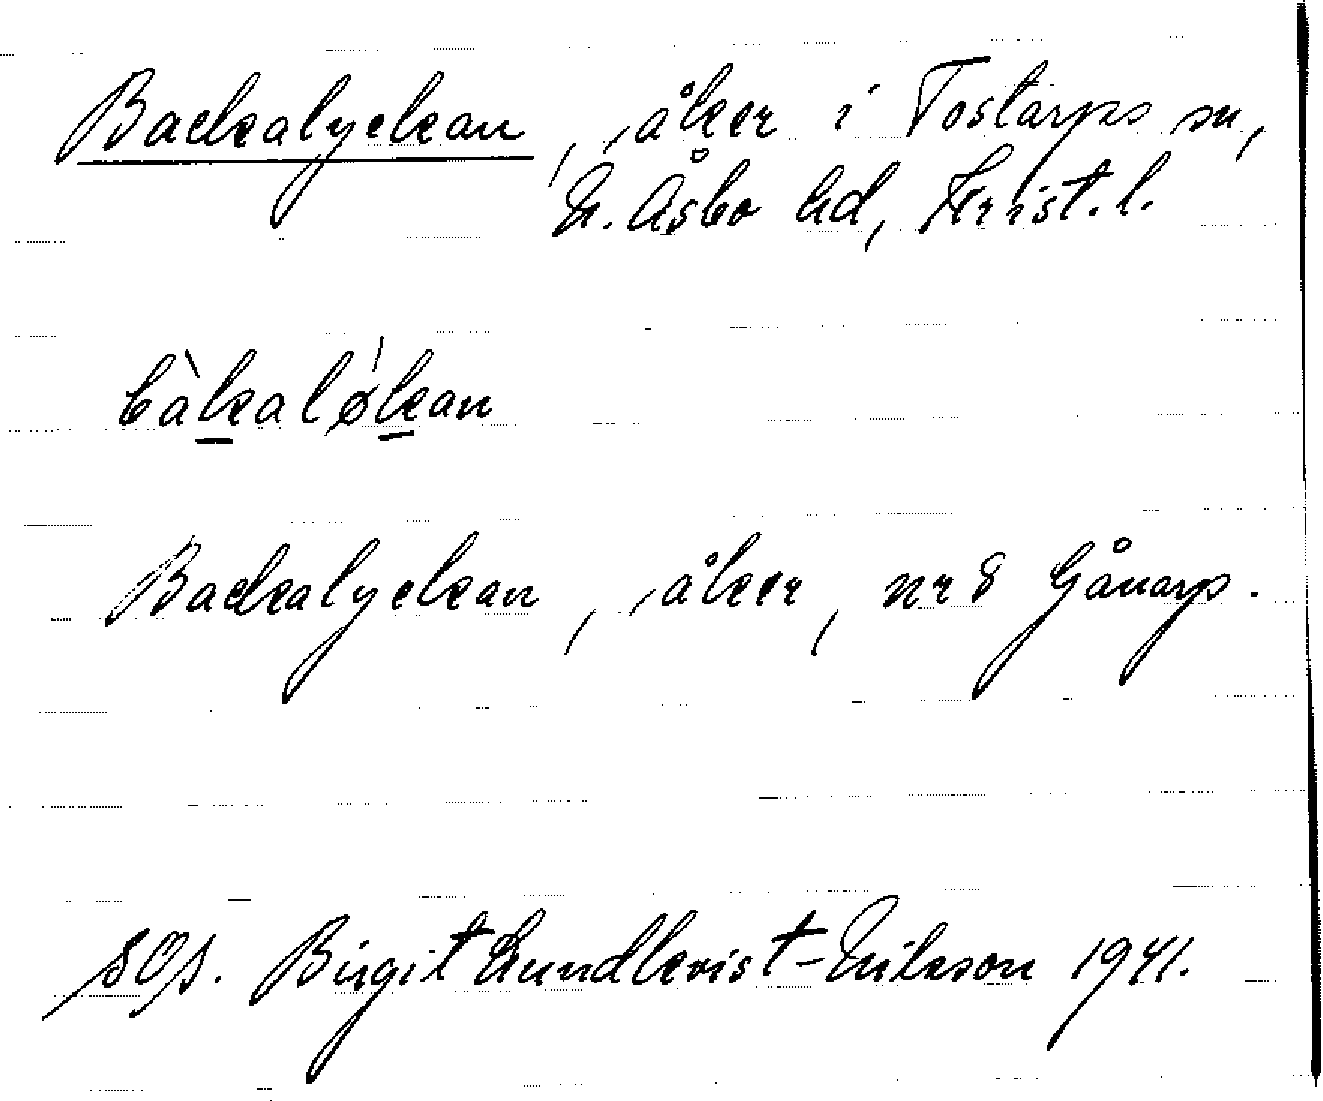 Backalyckan, åker i Tostarps sn,
N. Åsbo hd, Krist. l.
bàkalǿkan
Backalyckan, åker, nr 8 Gånarp.
Birgit Lundkvist-Nilsson 1941.